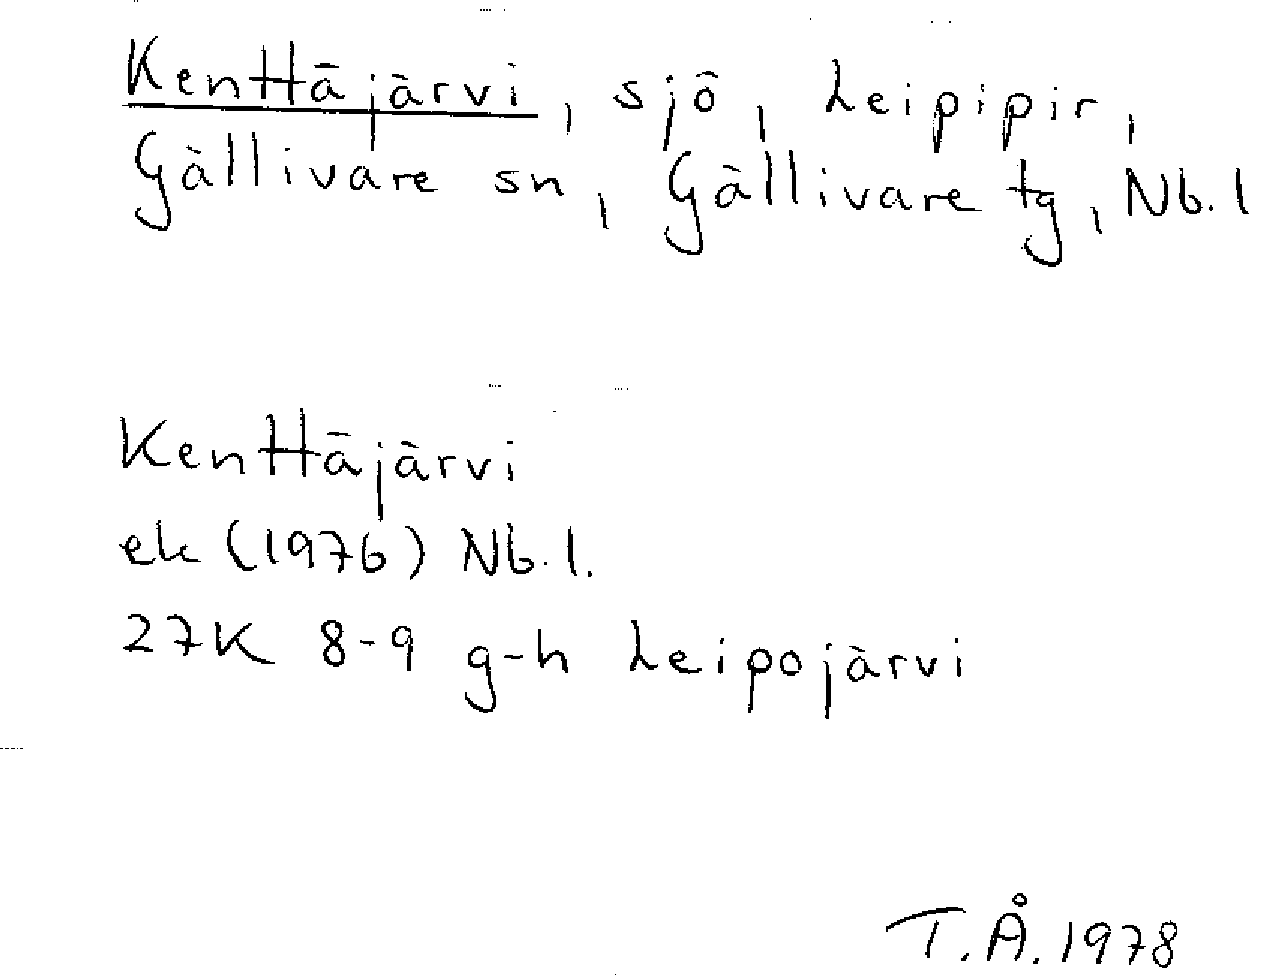 Kenttäjärvi, sjö, Leipipir,
Gällivare sn, Gällivare tg, Nb. l
Kenttäjärvi
ek (1976) Nb. l.
27K 8-9 g-h Leipojärvi
T.Å. 1978